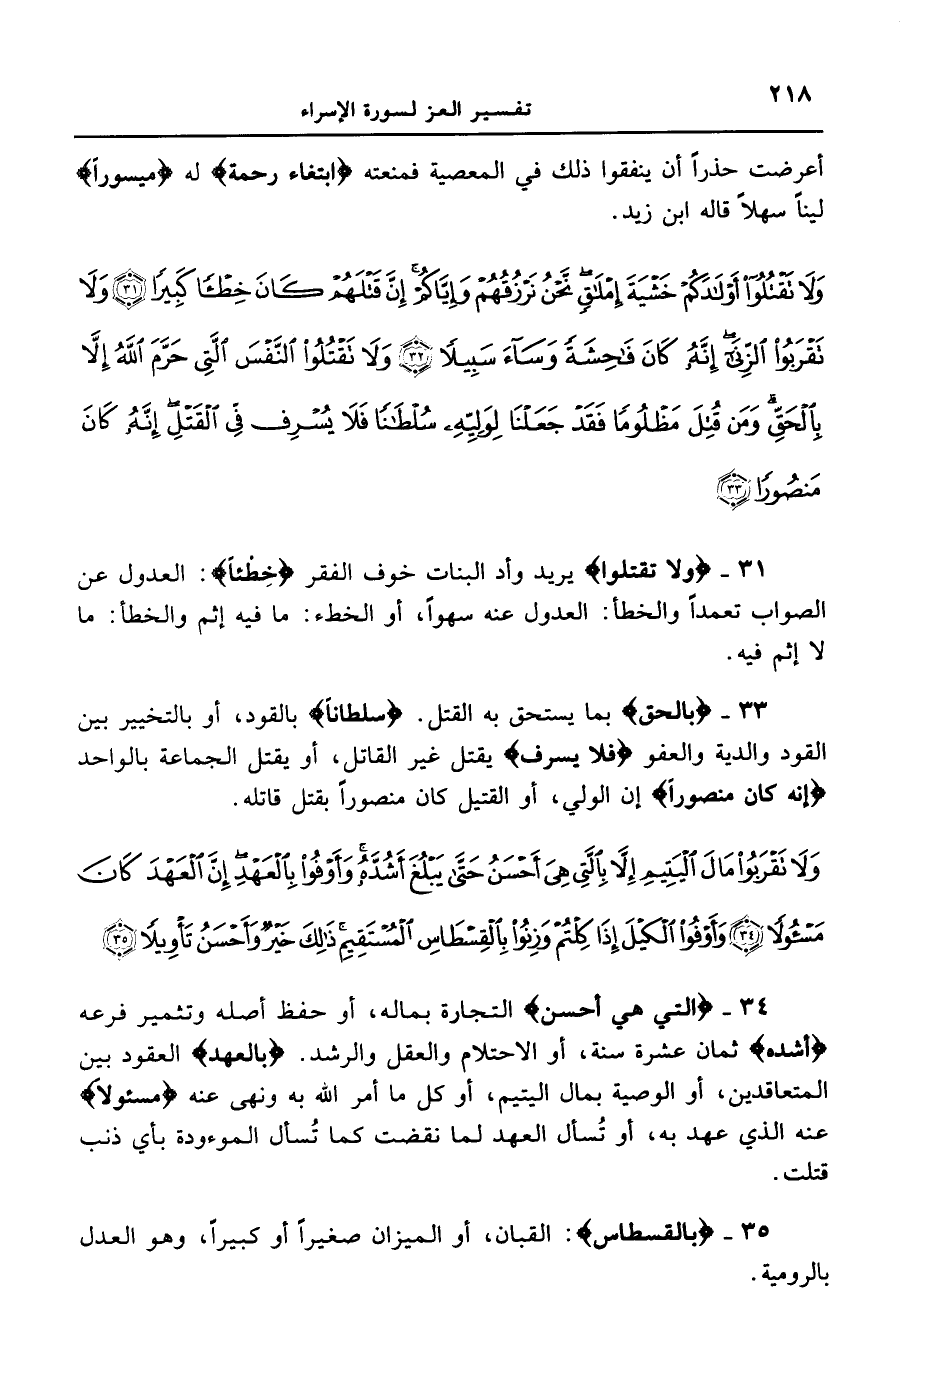 ٢١٨
تفسير العز لسورة الإسراء
أعرضت حذراً أن ينفقوا ذلك في المعصية فمنعته ﴿ابتغاء رحمة﴾ له ﴿ميسوراً﴾
ليناً سهلاً قاله ابن زيد.
وَلَا نَقْتُلُوٓا۟ أَوْلَٰدَكُمْ خَشْيَةَ إِمْلَٰقٍۖ نَّحْنُ نَرْزُقُهُمْ وَإِيَّاكُمْۚ إِنَّ قَتْلَهُمْ كَانَ خِطْـًٔا كَبِيرًا ﴿٣١﴾ وَلَا
نَقْرَبُوا۟ ٱلزِّنَىٰٓۖ إِنَّهُۥ كَانَ فَٰحِشَةً وَسَآءَ سَبِيلًا ﴿٣٢﴾ وَلَا نَقْتُلُوا۟ ٱلنَّفْسَ ٱلَّتِى حَرَّمَ ٱللَّهُ إِلَّا
بِٱلْحَقِّۗ وَمَن قُتِلَ مَظْلُومًا فَقَدْ جَعَلْنَا لِوَلِيِّهِۦ سُلْطَٰنًا فَلَا يُسْرِف فِّى ٱلْقَتْلِۖ إِنَّهُۥ كَانَ
مَنصُورًا ﴿٣٣﴾
٣١ ـ ﴿ولا تقتلوا﴾ يريد وأد البنات خوف الفقر ﴿خِطْئاً﴾: العدول عن
الصواب تعمداً والخطأ: العدول عنه سهواً، أو الخطء: ما فيه إثم والخطأ: ما
لا إثم فيه.
٣٣ ـ ﴿بالحق﴾ بما يستحق به القتل. ﴿سلطاناً﴾ بالقود، أو بالتخيير بين
القود والدية والعفو ﴿فلا يسرف﴾ يقتل غير القاتل، أو يقتل الجماعة بالواحد
﴿إنه كان منصوراً﴾ إن الولي، أو القتيل كان منصوراً بقتل قاتله.
وَلَا نَقْرَبُوا۟ مَالَ ٱلْيَتِيمِ إِلَّا بِٱلَّتِى هِىَ أَحْسَنُ حَتَّىٰ يَبْلُغَ أَشُدَّهُۥۚ وَأَوْفُوا۟ بِٱلْعَهْدِۖ إِنَّ ٱلْعَهْدَ كَانَ
مَسْـُٔولًا ﴿٣٤﴾ وَأَوْفُوا۟ ٱلْكَيْلَ إِذَا كِلْتُمْ وَزِنُوا۟ بِٱلْقِسْطَاسِ ٱلْمُسْتَقِيمِۚ ذَٰلِكَ خَيْرٌ وَأَحْسَنُ تَأْوِيلًا ﴿٣٥﴾
٣٤ ـ ﴿التي هي أحسن﴾ التجارة بماله، أو حفظ أصله وتثمير فرعه
﴿أشده﴾ ثمان عشرة سنة، أو الاحتلام والعقل والرشد. ﴿بالعهد﴾ العقود بين
المتعاقدين، أو الوصية بمال اليتيم، أو كل ما أمر الله به ونهى عنه ﴿مسئولاً﴾
عنه الذي عهد به، أو تُسأل العهد لما نقضت كما تُسأل الموءودة بأي ذنب
قتلت.
٣٥ ـ ﴿بالقسطاس﴾: القبان، أو الميزان صغيراً أو كبيراً، وهو العدل
بالرومية.